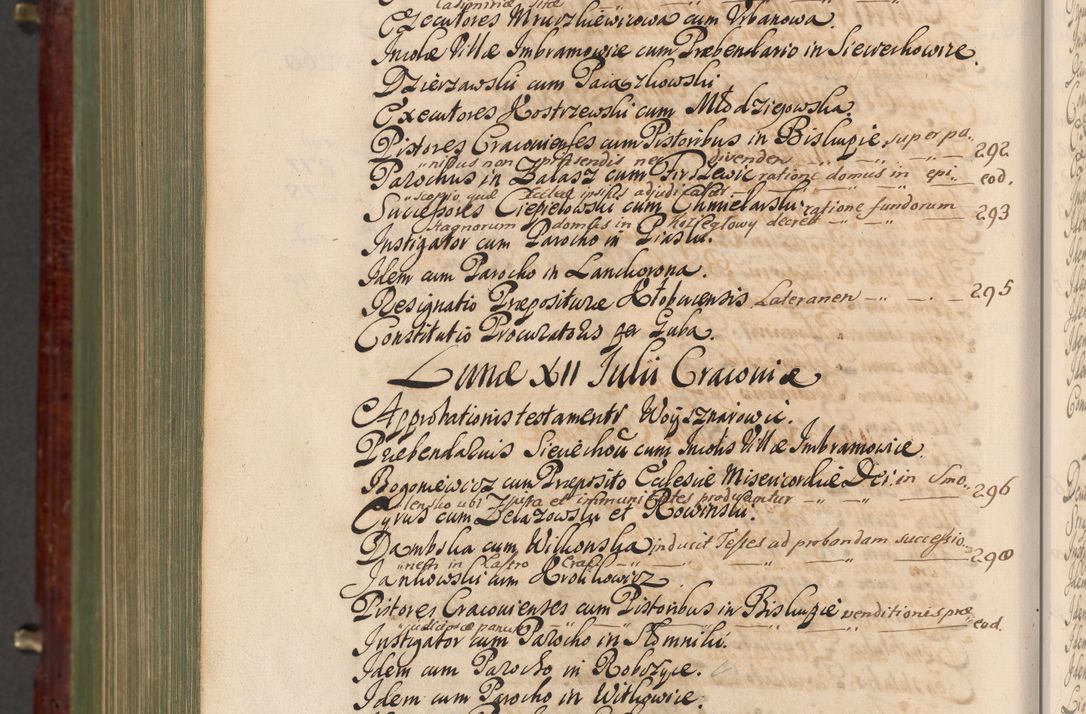 Executores Mruczkiewiczowa cum Urbanowa.
Incolæ Villæ Imbramowice cum Præbendario in Siewechowice.
Dzierzawski cum Paiączkowski
Executores Kostrzewski cum Młodziejowska.
Pistores Cracovienses cum Pistoribus in Biskupie, super pa„ 292
„nibus non divenden
Parochus in Zalasz cum ratione domus in epi„ eod.
„scopio, quæ Ecclæ ipsius adjudicatur
Successores Ciepielowski cum Chmielarski ratione fundorum 293
stagnorum domus in Koziegłowy decret
Instigator cum Parocho in Piaski.
Idem cum Parocho in Lanckorona.
Resignatio Præposituræ Kłobucensis Lateranen 295
Constitutio Procuratoris per Guba.
Lunæ XII Julii Cracoviæ
Approbationis testamenti Woysznarowic.
Præbendarius Sieciechov cum Incolis Villæ Imbramowice.
Rogoniewicz cum Præposito Ecclesiæ Misericordiæ Dei in Smo„ 296
„lensko ubi Jura et immunitates producantur
Cyrus cum Zelazowski et Rowinski.
Dambska cum Wilkonska inducit Testes ad probandam successio„ 298
„nem in Castro Crac
Jankowski cum Krolikowicz
Pistores Cracovienses cum Pistoribus in Biskupie venditiones præ eod.
„judiciosæ panum
Instigator cum Parocho in Słomniki.
Idem cum Parocho in Robczyce.
Idem cum Parocho in Witkowice.